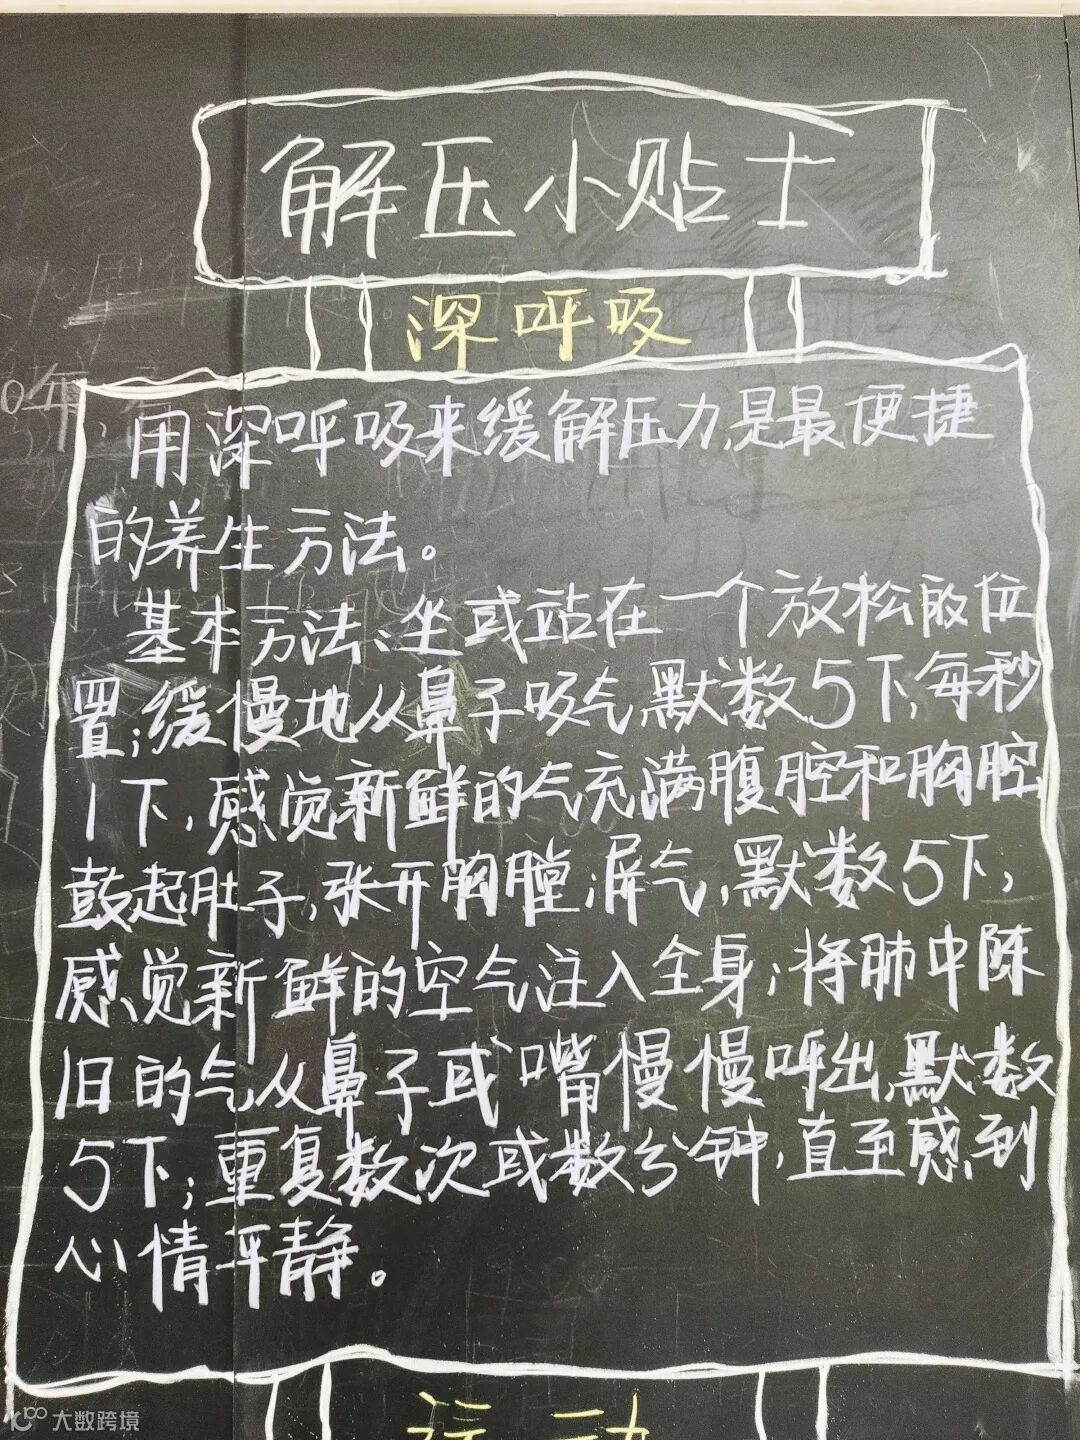 解压小贴士
深呼吸
用深呼吸来缓解压力,是最便捷
的养生方法。
基本方法:坐或站在一个放松的位
置;缓慢地从鼻子吸气,默数5下,每秒
1下,感觉新鲜的气充满腹腔和胸腔,
鼓起肚子,张开胸膛;屏气,默数5下,
感觉新鲜的空气注入全身;将肺中陈
旧的气从鼻子或嘴慢慢呼出,默数
5下;重复数次或数分钟,直至感到
心情平静。
运动
大数跨境